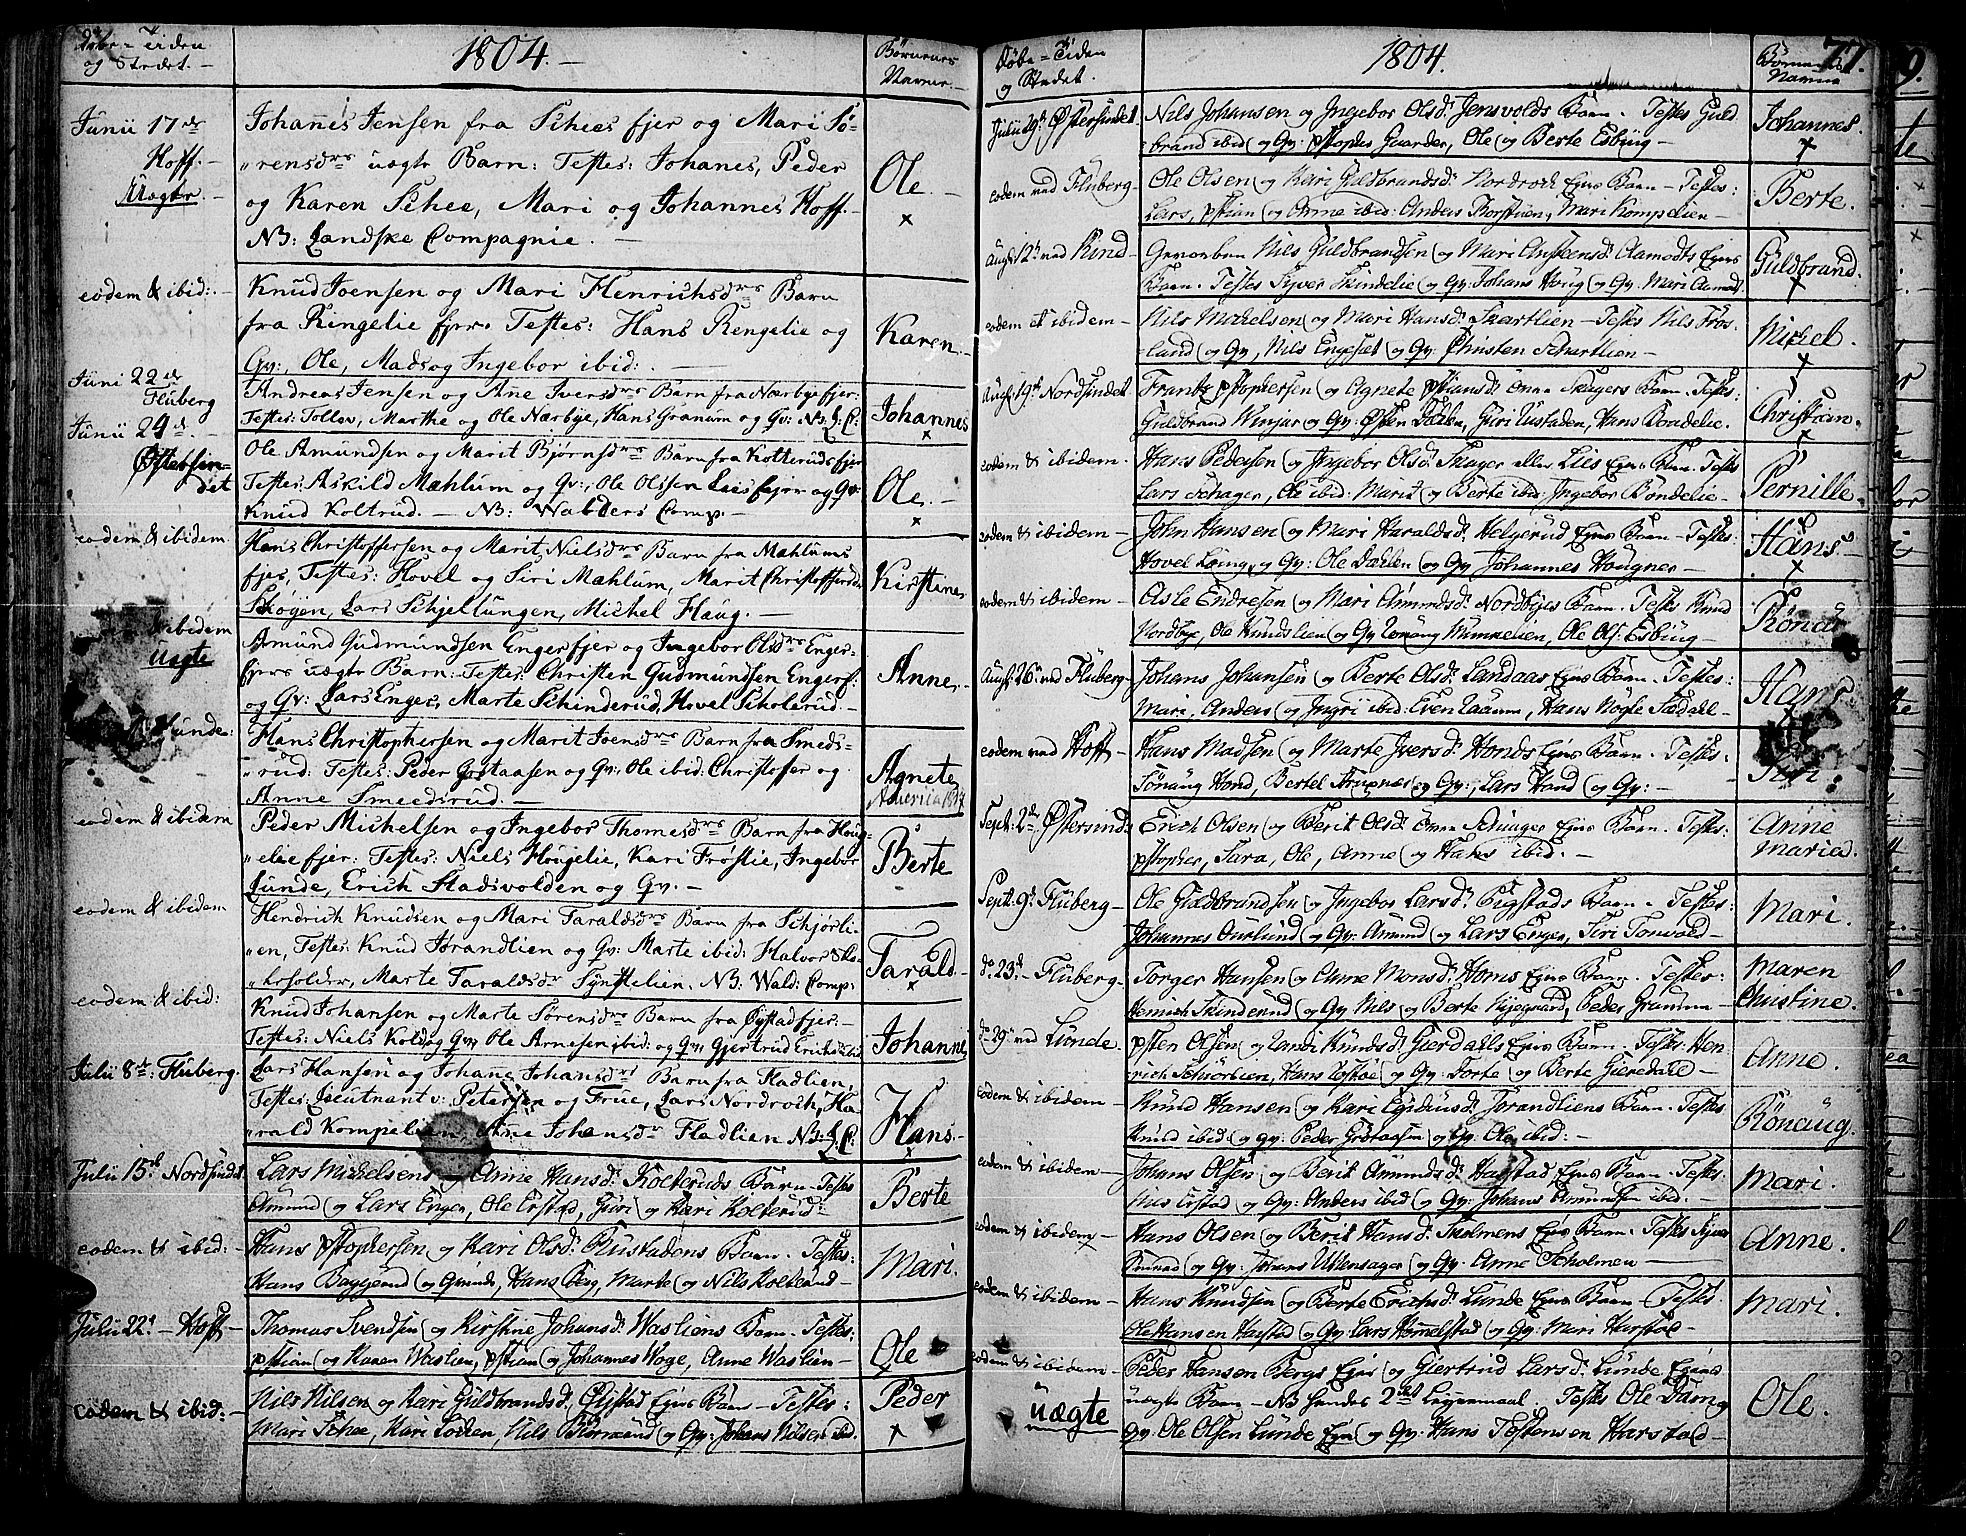 Döbe-Tiden
og Stædet.
1804.
Börnenes
Navne.
Junii 17de
Hoff.
Uægte.
Johannes Jensen fra Schees fjer og Mari Sö-
rensdrs uægte Barn: Testes: Johanes, Peder
og Karen Schee, Mari og Johannes Hoff.
NB: Landske Compagnie.
Ole.
eodem & ibid:
Knud Joensen og Mari Henrichsdrs Barn
fra Ringelie fjer. Testes: Hans Rengelie og
Gv:, Ole, Mads og Ingebor ibid:
Karen.
Juni 22de
Fluberg
Andreas Jensen og Ane Iversdrs Barn fra Nærbye fjer:
Testes: Tollov, Marthe og Ole Nærbye, Hans Granum og Gv: NB: L: C:
Johannes
Junii 29de
Östersin-
det
Ole Amundsen og Marit Björnsdrs Barn fra Kolteruds fjer
Testes: Askild Mæhlum og Gv:, Ole Olssen Lies fejer og Gv:
Knud Koltrud. NB: Walders Comp.
Ole.
eodem & ibidem
Hans Christoffersen og Marit Nielsdrs Barn fra Mæhlums
fjer, Testes: Hovel og Siri Mæhlum, Marit Christoffersdr
Skogen, Lars Schjellungen, Michel Haug.
Kirstine
ibidem
Uægte
Amund Gudmundsen Enger fjer og Ingebor Olsdrs Enger-
fjers uægte Barn. Testes: Christen Gudmundsen Engerf:
og Gv: Lars Enger, Marte Schinderud, Hovel Scholerud.
Anne.
Lunde:
Hans Christophersen og Marit Joensdrs Barn fra Smeds-
rud: Testes: Peder Grøtaasen og Gv:, Ole ibid: Christofer og
Anne Smeedsrud.
Agnete
eodem & ibidem
Peder Michelsen og Ingebor Thomesdrs Barn fra Houg-
elie fjer: Testes: Niels Hougelie, Kari Fröslie, Ingebor
Lunde, Erich Stadsvolden og Gv.
Berte
eodem & ibidem
Hendrich Knudsen og Mari Taraldsdrs Barn fra Schjörli-
en, Testes: Knud Jörandlien og Gv: Marte ibid: Halvor
Marte Taraldsdr Synstelien. NB: Wald: Comp:
Tarald
eodem & ibid:
Knud Johansen og Marte Sörensdrs Barn fra Öystad fjer:
Testes: Niels Kold og Gv, Ole Arnesen ibid: og Gv, Gjertrud Erichsdr ibid
Johannes
Julii 8de: Fluberg.
Lars Hansen og Johane Johansdrs Barn fra Fladlien,
Testes: Lieutnant v: Petersen og Frue, Lars Nordroch, Ha-
rald Kompelien, Anne Johansdr Fladlien NB: L: C:
Hans.
Julii 15de Nordsindet.
Lars Michelsens og Anne Hansd: Kolteruds Barn. Testes
Amund og Lars Enger, Ole Erstad, Guri og Kari Kolterud.
Berte
eodem & ibid:
Hans Xstophersen og Kari Olsd: Rustadens Barn. Testes:
Hans Baggerud og Amund, Hans Berg, Marte og Nils Kolterud
Mari.
Julii 22d Hoff
Thomas Svendsen og Kirstine Johansd: Wasliens Barn. Testes:
Xstian og Karen Waslien, Xstian og Johannes Woge, Anne Waslien
Ole
eodem & ibid:
Nils Nilsen og Kari Guldbrandsd: Öystad Ejers Barn. Testes:
Mari Schee, Kari Lodien, Nils og Gv: Johans Nilsen ibid.
Peder
Döbe-Tiden
og Stedet.
1804.
Börnenes
Navne
77.
9.
Julii 29de Östersindet
Nils Johansen og Ingebor Olsd: Jensvolds Barn. Testes Guld-
brand ibid og Gv: Xstopher Gaarder, Ole og Berte Esbjug
Johannes.
eodem ved Fluberg
Ole Olsen og Kari Guldbrandsd: Nordroch Ejers Barn. Testes:
Lars, Xstian og Anne ibid: Anders Borstuen, Mari Kompelien
Berte.
Augt: 12te ved Kind
Guldbrandsen og Mari
Barn. Testes Syver Skindelie og Gv: Johans Houg og Gv: Mari
Guldbrand.
eodem et ibidem
Nils Michelsen og Mari Hansd: Skartlien. Testes Nils Frös-
land og Gv, Nils Engeset og Gv. Christen Schartlien
Michel.
Augt: 19de Nordsindet
Frantz Xstophersen og Agnete Xstiansd: Skagers Barn. Testes:
Guldbrand Winjar og Gv: Østen Dahlen, Guri Rustaden, Hans Bondelie.
Christian.
eodem & ibidem.
Hans Pedersen og Ingebor Olsd: Skager eller Liis Ejers Barn. Testes
Lars Schager, Ole ibid: Marit og Berte ibid: Ingebor Bondelie
Pernille.
eodem & ibidem
John Hansen og Mari Haraldsd: Helgerud Ejers Barn. Testes:
Hovel Loeng og Gv: Ole Dæhlen og Gv Johannes Hougner
Hans
eodem & ibidem
Aisle Endresen og Mari Amundsd: Nordbyes Barn. Testes Knud
Nordbye, Ole Hundslien og Gv Rönaug Wimmelien, Ole Ols: Esbjug
Rönau
Augt: 26de ved Fluberg
Johans Johansen og Berte Olsd: Landaas Ejers Barn. Testes:
Mari, Anders og Ingri ibid: Even Raaum, Hans Nögle Sædahl
Hans
eodem ved Hoff
Hans Madsen og Marte Iversd: Honds Ejers Barn. Testes:
Rönaug Hond, Bertel og Gv:, Lars Hond og Gv:
Septr: 2de Östersind:
Erich Olsen og Berit Olsd: Schager Ejers Barn. Testes:
Xstopher, Sara, Ole, Anne og Hans ibid.
Anne
Maria.
Septr: 9de Fluberg
Ole Guldbrandsen og Ingebor Larsd: Bigstads Barn. Testes:
Johannes Ourlund og Gv: Amund og Lars Enger, Siri Tonvold
Mari.
do. 23de Fluberg
Torger Hansen og Anne Monsd: Homs Ejers Barn. Testes:
Henrich Skinderud og Gv: Nils og Berte Nygaard, Peder Granum
Maren
Christine.
do. 29de ved Lunde
Xsten Olsen og Randi Knudsd: Gjerdahls Ejers Barn. Testes: Hen-
rich Schiörlien, Hans Tostoe og Gv: Torte og Berte Gierdahl
Anne.
eodem & ibidem
Knud Hansen og Kari Egidiusd: Jörandliens Barn. Testes
Knud ibid: og Gv: Peder Grötaasen og Gv. Ole ibid:
Rönaug.
eodem & ibidem
Johans Olsen og Berit Amundsd: Harstad Ejers Barn. Testes:
Nils Erstad og Gv: Anders ibid og Gv: Johans Amundsen ibid.
Mari.
eodem & ibidem
Hans Olsen og Berit Hansd: Skolmens Ejers Barn. Testes Syver
Smerud og Gv: Johans Uttensager og Gv: Anne Scholmen
Anne.
eodem & ibidem
Hans Knudsen og Berte Erichsd: Lunde Ejers Barn. Testes
Ole Hansen Harstad og Gv. Lars Hommelstad og Gv: Mari Harstad
Mari.
eodem & ibidem
uægte
Peder Hansen Bergs Ejers og Giertrud Larsd: Lunde Ejers
uægte Barn. NB hendes 2det Lejermaal. Testes Ole Dam og
Gv: Ole Olsen Lunde Ejer og Gv: Hans Tostensen Harstad
Ole.